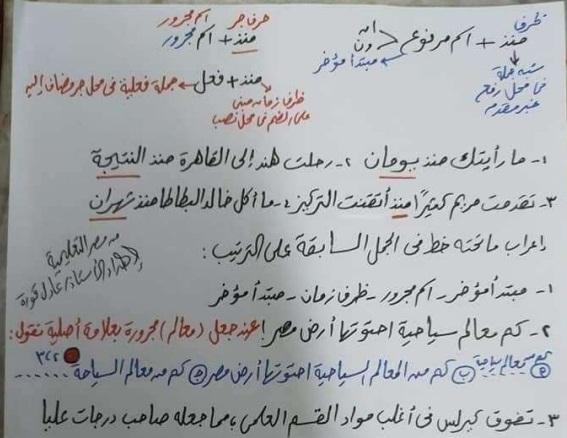 ظرف
منذ + اسم مرفوع
ان
ون
مبتدأ مؤخر
شبه جملة
فى محل رفع
خبر مقدم
حرف جر اسم مجرور
منذ + اسم مجرور
منذ + فعل ← جملة فعلية فى محل جر مضاف إليه
ظرف زمان مبنى
على الضم فى محل نصب
١- ما رأيتك منذ يومان ٢- رحلت هند إلى القاهرة منذ النتيجة
٣- تقدمت مريم كثيرًا منذ أتقنت التركيز ٤- ما أكل خالد البطاطا منذ شهران
إعراب ما تحته خط فى الجمل السابقة على الترتيب :
من مصر التعليمية
الأستاذ / عادل
١- مبتدأ مؤخر - اسم مجرور - ظرف زمان - مبتدأ مؤخر
٢- كم معالم سياحية احتوتها أرض مصر ! عند جعل (معالم) مجرورة بعلامة أصلية نقول :
كم معالم سياحة ب كم من المعالم السياحية احتوتها أرض مصر كم من معالم السياحة ......
٣- تفوق كيرلس فى أغلب مواد القسم العلمى ، مما جعله صاحب درجات عليا